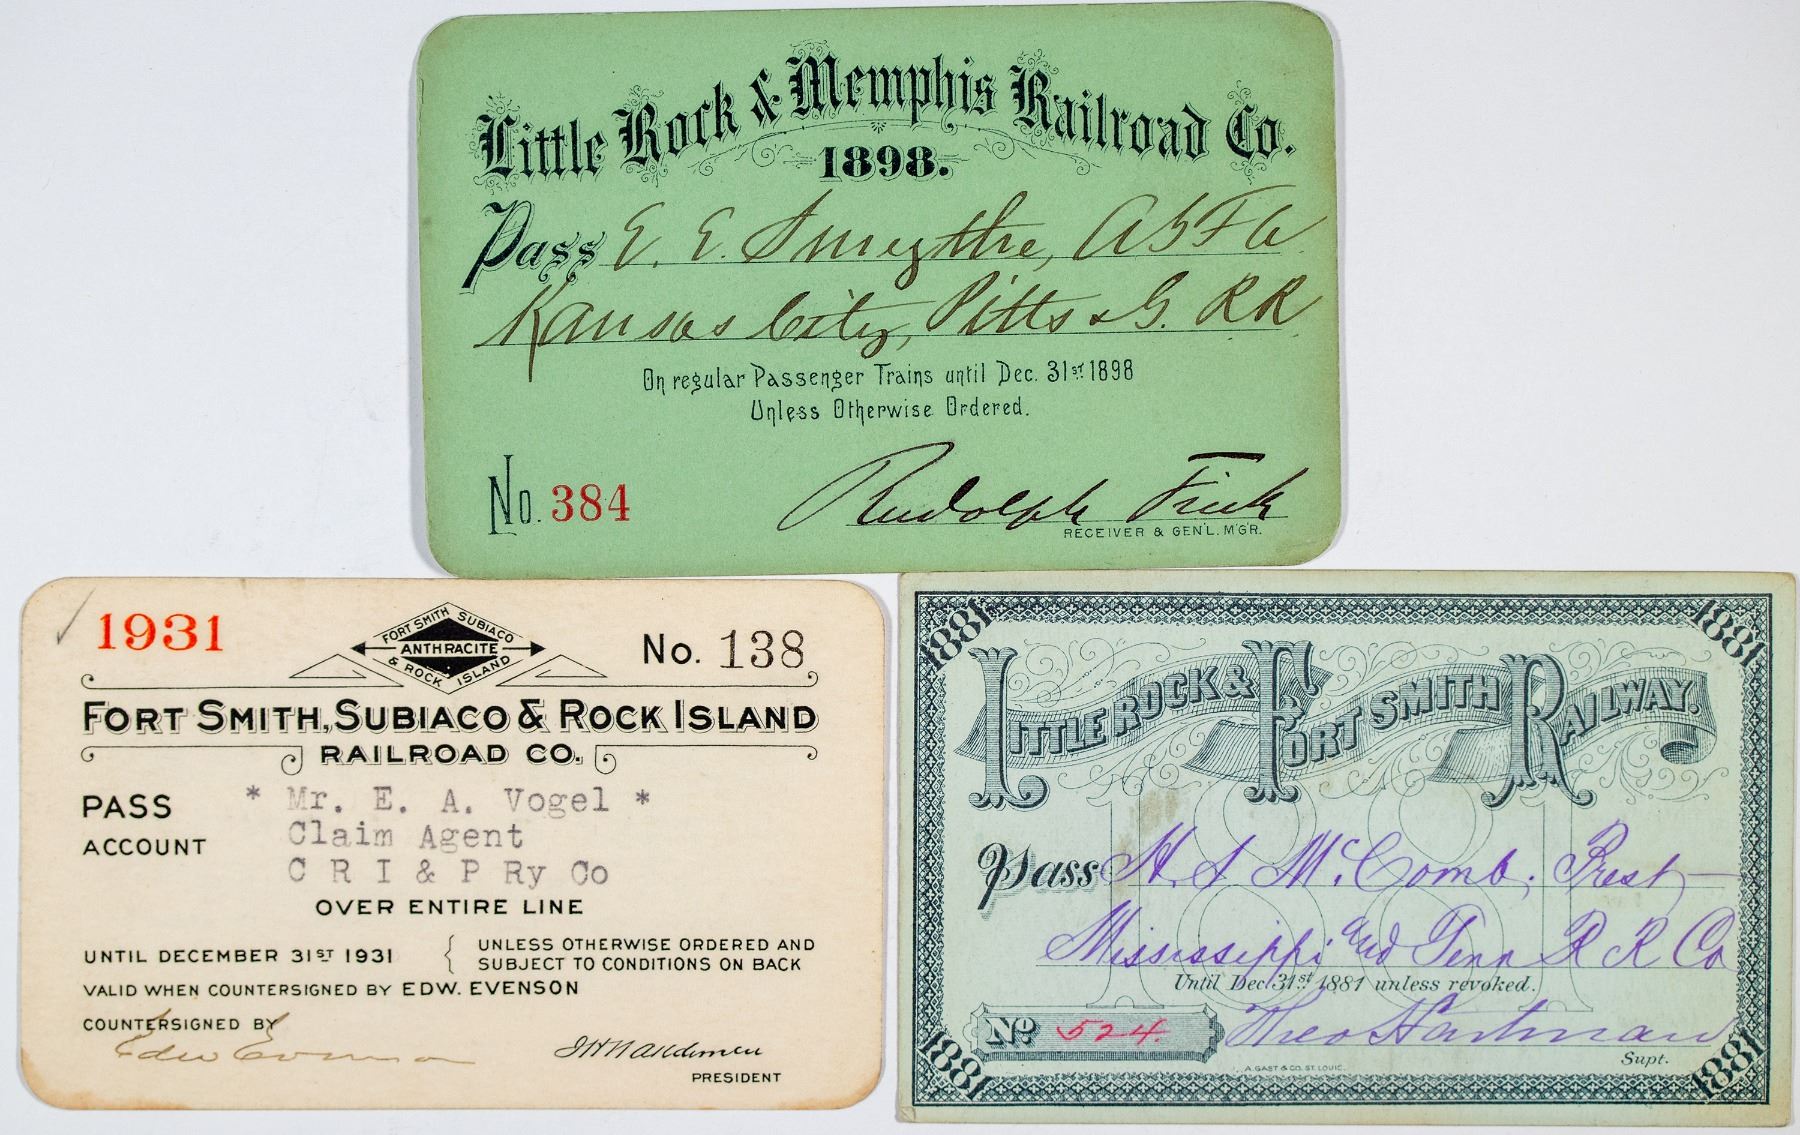 Little Rock & Memphis Railroad Co.
1898.
Pass E. E. Smythe, AGFA
Kansas City, Pitts & G. RR
On regular Passenger Trains until Dec. 31st 1898
Unless Otherwise Ordered.
No. 384
Rudolph Fink
RECEIVER & GEN'L. M'G'R.
1931
FORT SMITH SUBIACO
ANTHRACITE
& ROCK ISLAND
No. 138
FORT SMITH, SUBIACO & ROCK ISLAND
RAILROAD CO.
PASS * Mr. E. A. Vogel *
ACCOUNT Claim Agent
C R I & P Ry Co
OVER ENTIRE LINE
UNTIL DECEMBER 31ST 1931 { UNLESS OTHERWISE ORDERED AND
SUBJECT TO CONDITIONS ON BACK
VALID WHEN COUNTERSIGNED BY EDW. EVENSON
COUNTERSIGNED BY
Edw Evenson
PRESIDENT
1881 1881
LITTLE ROCK & FORT SMITH RAILWAY.
1881
Pass H. S. McComb, Prest
Mississippi and Tenn R R Co
Until Dec. 31st 1881 unless revoked.
No 524.
Theo Hartman
Supt.
A. GAST & CO. ST. LOUIS.
1881 1881